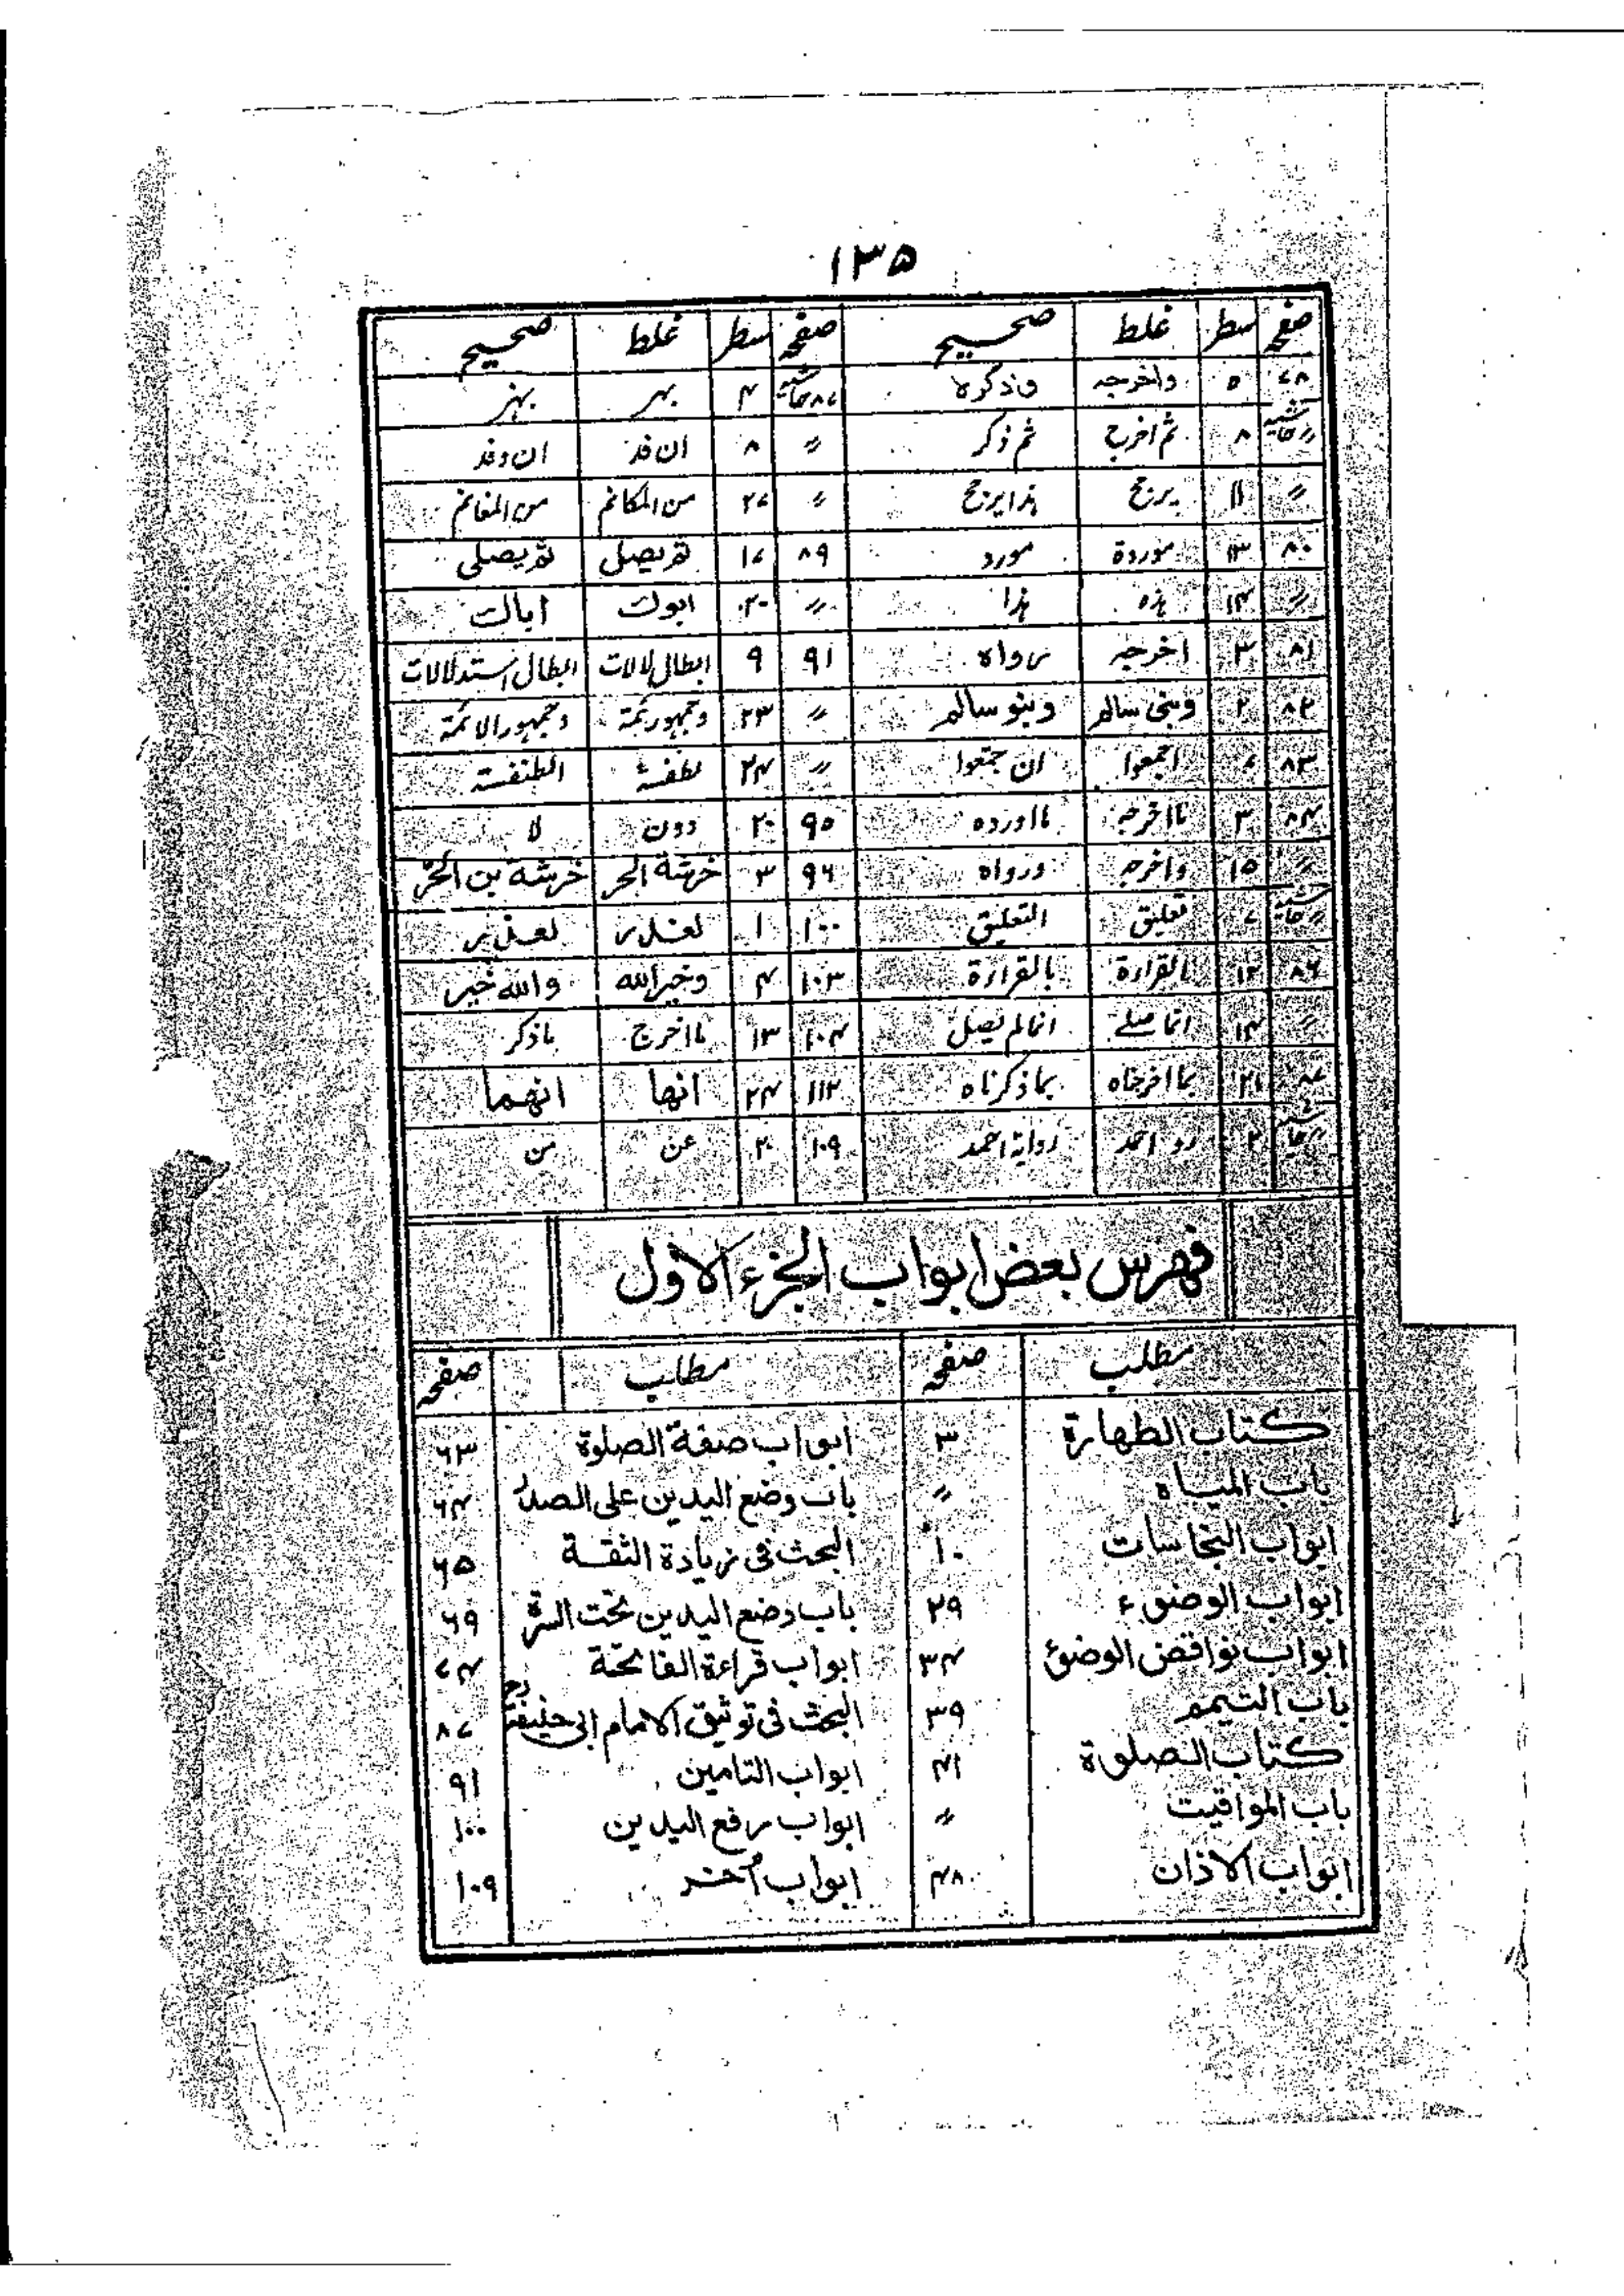 ۱۳۵
صفحہ سطر غلط صحیح صفحہ سطر غلط صحیح
۷۸ ۵ واخرجہ وذکرہ ۸۷ حاشیہ ۴ بہر بہز
〃 حاشیہ ۸ ثم اخرج ثم ذکر 〃 ۸ ان فد ان وفد
〃 ۱۱ یرجح ہذا یرجح 〃 ۲۷ من المکانم من المغانم
۸۰ ۱۳ موردة مورد ۸۹ ۱۷ ثم یصل ثم یصلی
〃 ۱۴ ہذہ ہذا 〃 ۲۰ ابوك اباك
۸۱ ۳ اخرجہ رواه ۹۱ ۹ ابطال لالات ابطال استدلالات
۸۲ ۲ وبنی سالم وبنو سالم 〃 ۲۳ وجمہور ئمة وجمہور الائمة
۸۳ ۷ اجمعوا ان جمعوا 〃 ۲۴ لطفسة الطنفسة
۸۴ ۳ مااخرجہ مااوردہ ۹۵ ۲۰ دون لا
〃 ۱۵ واخرجہ ورواه ۹۶ ۳ خرشة الحر خرشة بن الحرّ
〃 حاشیہ ۷ تعلیق التعلیق ۱۰۰ ۱ لعذر لعذیر
۸۶ ۱۲ القرارة بالقرارة ۱۰۳ ۴ وخیر الله والله خیر
〃 ۱۴ انما صلے انما لم یصل ۱۰۴ ۱۳ مااخرج ماذکر
۲۱ بما اخرجناہ بما ذکرناہ ۱۱۲ ۲۴ انها انهما
۲ رو احمد روایة احمد ۱۰۹ ۲۰ عن من
فهرس بعض ابواب الجزء الاول
مطلب صفحہ مطلب صفحہ
كتاب الطهارة ۳ ابواب صفة الصلوة ۶۳
باب المياه 〃 باب وضع اليدين على الصدر ۶۴
ابواب النجاسات ۱۰ البحث فى زيادة الثقة ۶۵
ابواب الوضوء ۲۹ باب وضع اليدين تحت السرة ۶۹
ابواب نواقض الوضؤ ۳۴ ابواب قراءة الفاتحة ۷۴
باب التيمم ۳۹ البحث فى توثيق الامام ابى حنيفةرح ۸۷
كتاب الصلوة ۴۱ ابواب التامين ۹۱
باب المواقيت 〃 ابواب رفع اليدين ۱۰۰
ابواب الاذان ۴۸ ابواب أخر ۱۰۹